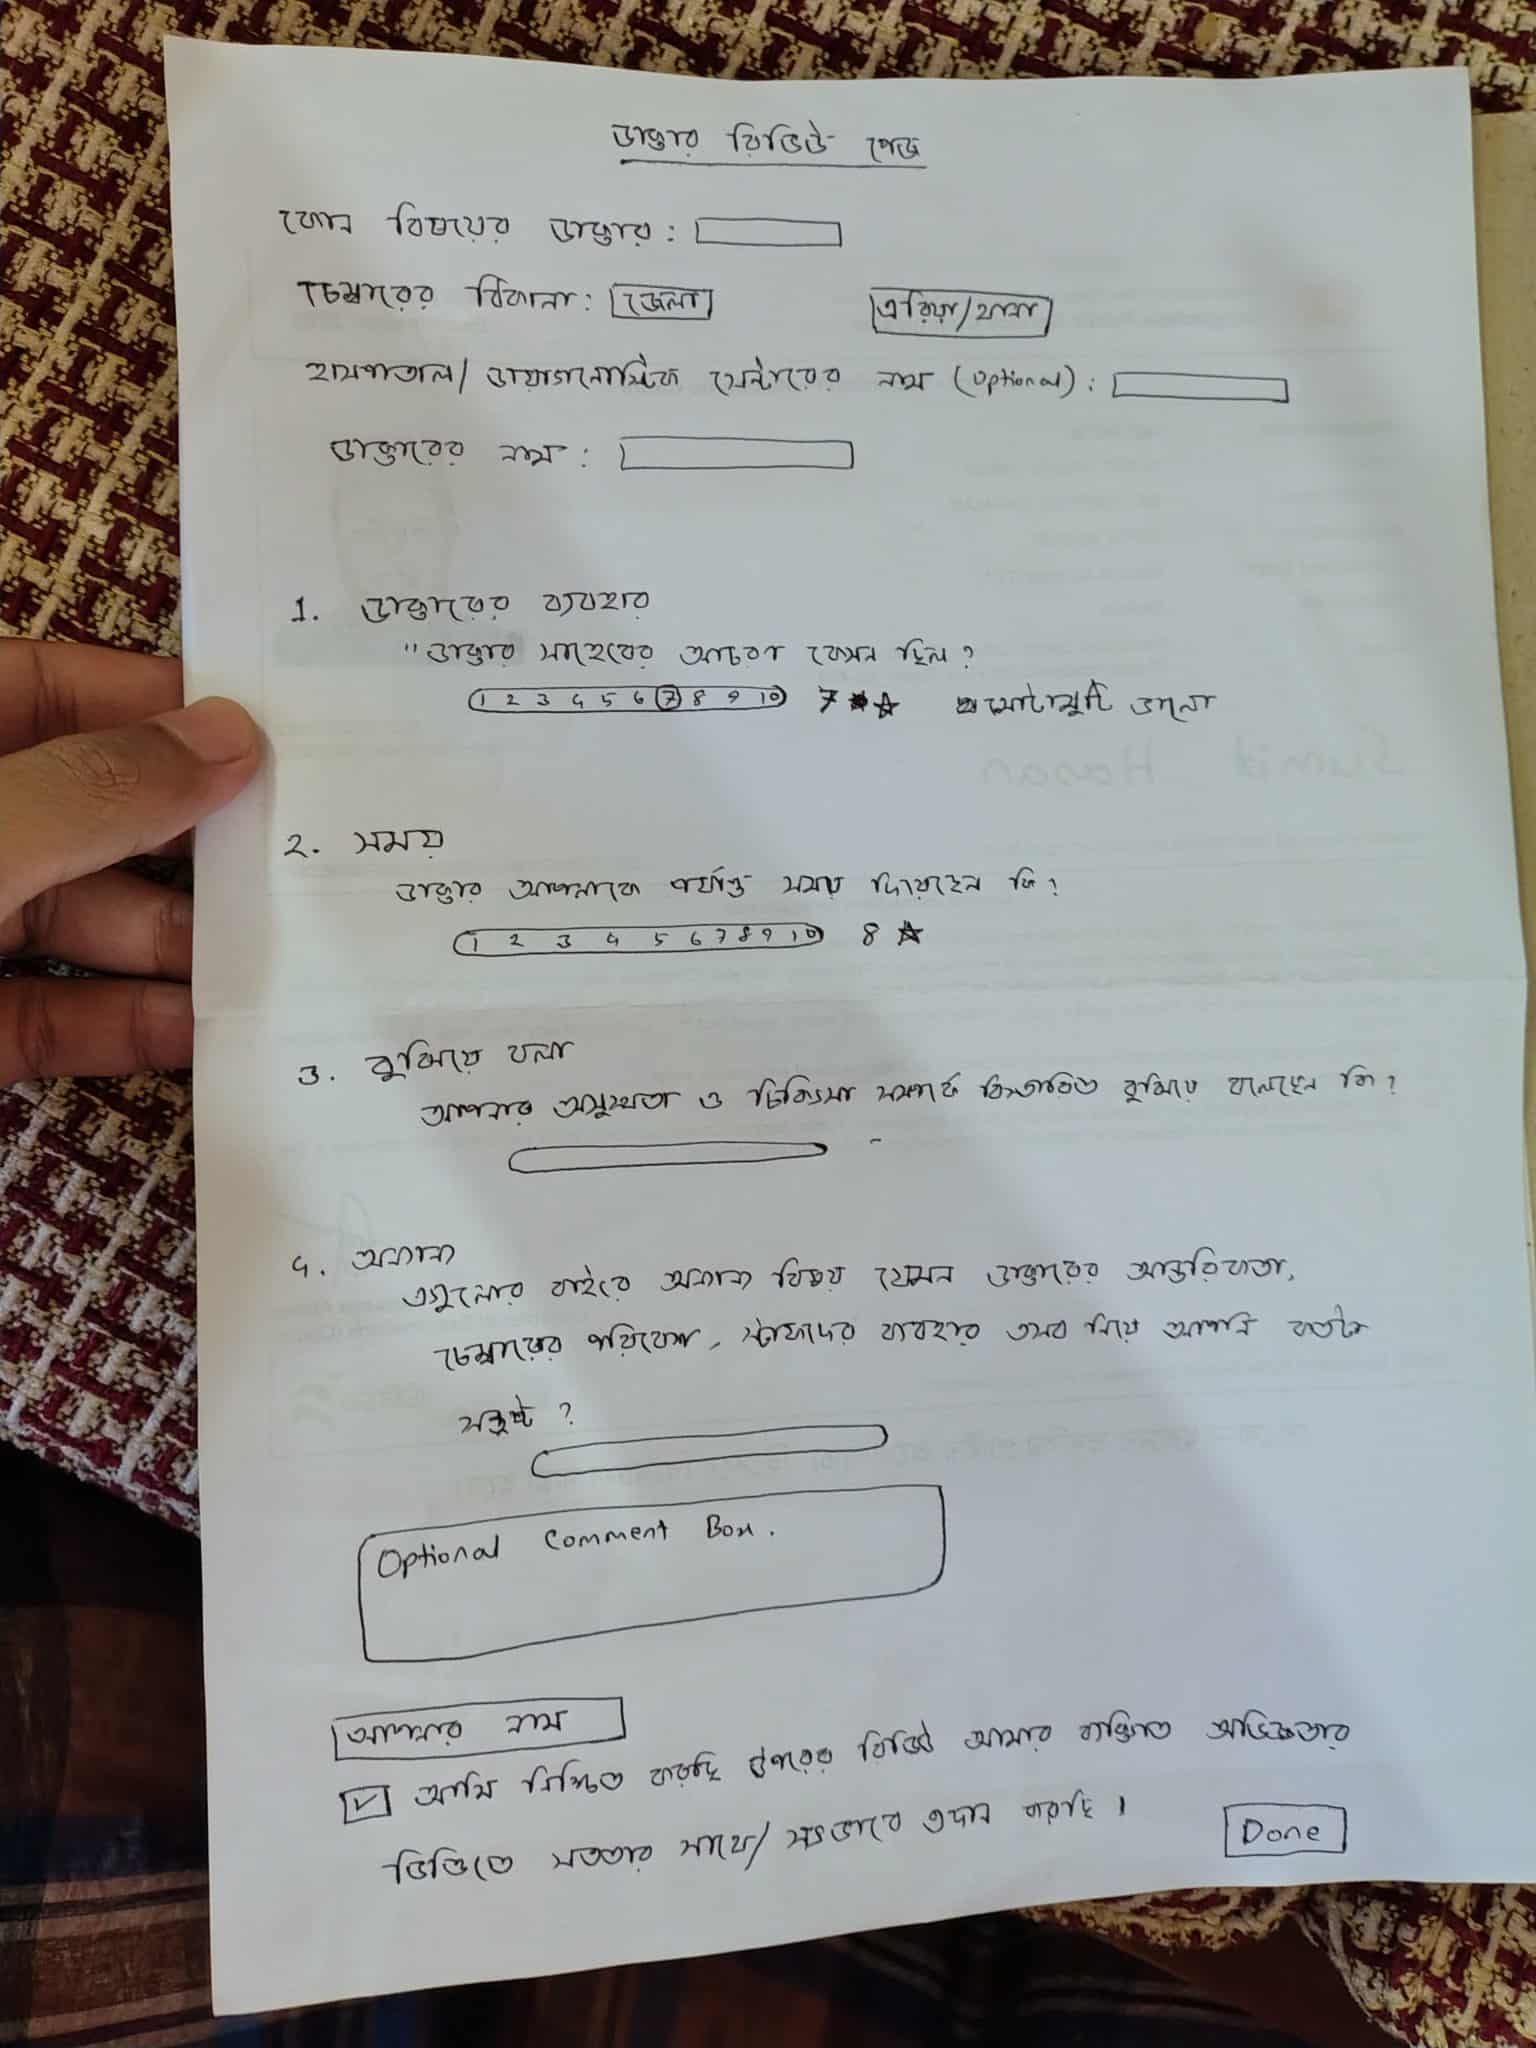 ডাক্তার রিভিউ পেজ
কোন বিষয়ের ডাক্তার :
চেম্বারের ঠিকানা : জেলা এরিয়া/থানা
হাসপাতাল/ ডায়াগনোস্টিক সেন্টারের নাম (optional) :
ডাক্তারের নাম :
1. ডাক্তারের ব্যবহার
"ডাক্তার সাহেবের আচরণ কেমন ছিল ?
1 2 3 4 5 6 7 8 9 10 7 মোটামুটি ভালো
2. সময়
ডাক্তার আপনাকে পর্যাপ্ত সময় দিয়েছেন কি ?
1 2 3 4 5 6 7 8 9 10 8
3. বুঝিয়ে বলা
আপনার অসুস্থতা ও চিকিৎসা সম্পর্কে বিস্তারিত বুঝিয়ে বলেছেন কি ?
4. অন্যান্য
এগুলোর বাইরে অন্যান্য বিষয় যেমন ডাক্তারের আন্তরিকতা,
চেম্বারের পরিবেশ, স্টাফদের ব্যবহার এসব নিয়ে আপনি কতটা
সন্তুষ্ট ?
Optional Comment Box.
আপনার নাম
আমি নিশ্চিত করছি উপরের রিভিউ আমার ব্যক্তিগত অভিজ্ঞতার
ভিত্তিতে সততার সাথে/ সৎভাবে প্রদান করছি।
Done
Sumid Hasan